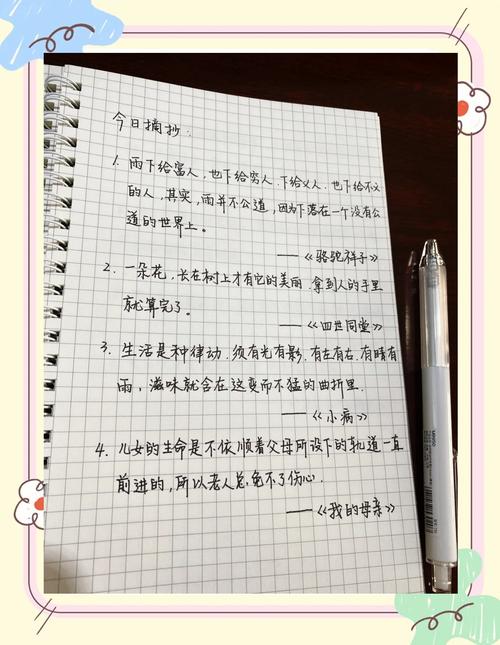 今日摘抄：
1. 雨下给富人，也下给穷人，下给义人，也下给不义
的人，其实，雨并不公道，因为下落在一个没有公
道的世界上。
——《骆驼祥子》
2. 一朵花，长在树上才有它的美丽，拿到人的手里
就算完了。
——《四世同堂》
3. 生活是种律动，须有光有影，有左有右，有晴有
雨，滋味就含在这变而不猛的曲折里
——《小病》
4. 儿女的生命是不依顺着父母所设下的轨道一直
前进的，所以老人总免不了伤心。
——《我的母亲》